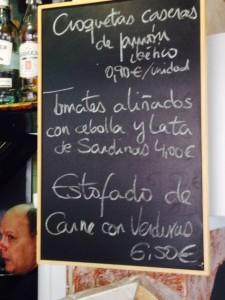 Croquetas caseras
de jamón
ibérico
0,70€/unidad
Tomates aliñados
con cebolla y lata
de Sardinas 4,00€
Estofado de
Carne con Verduras
6,50€